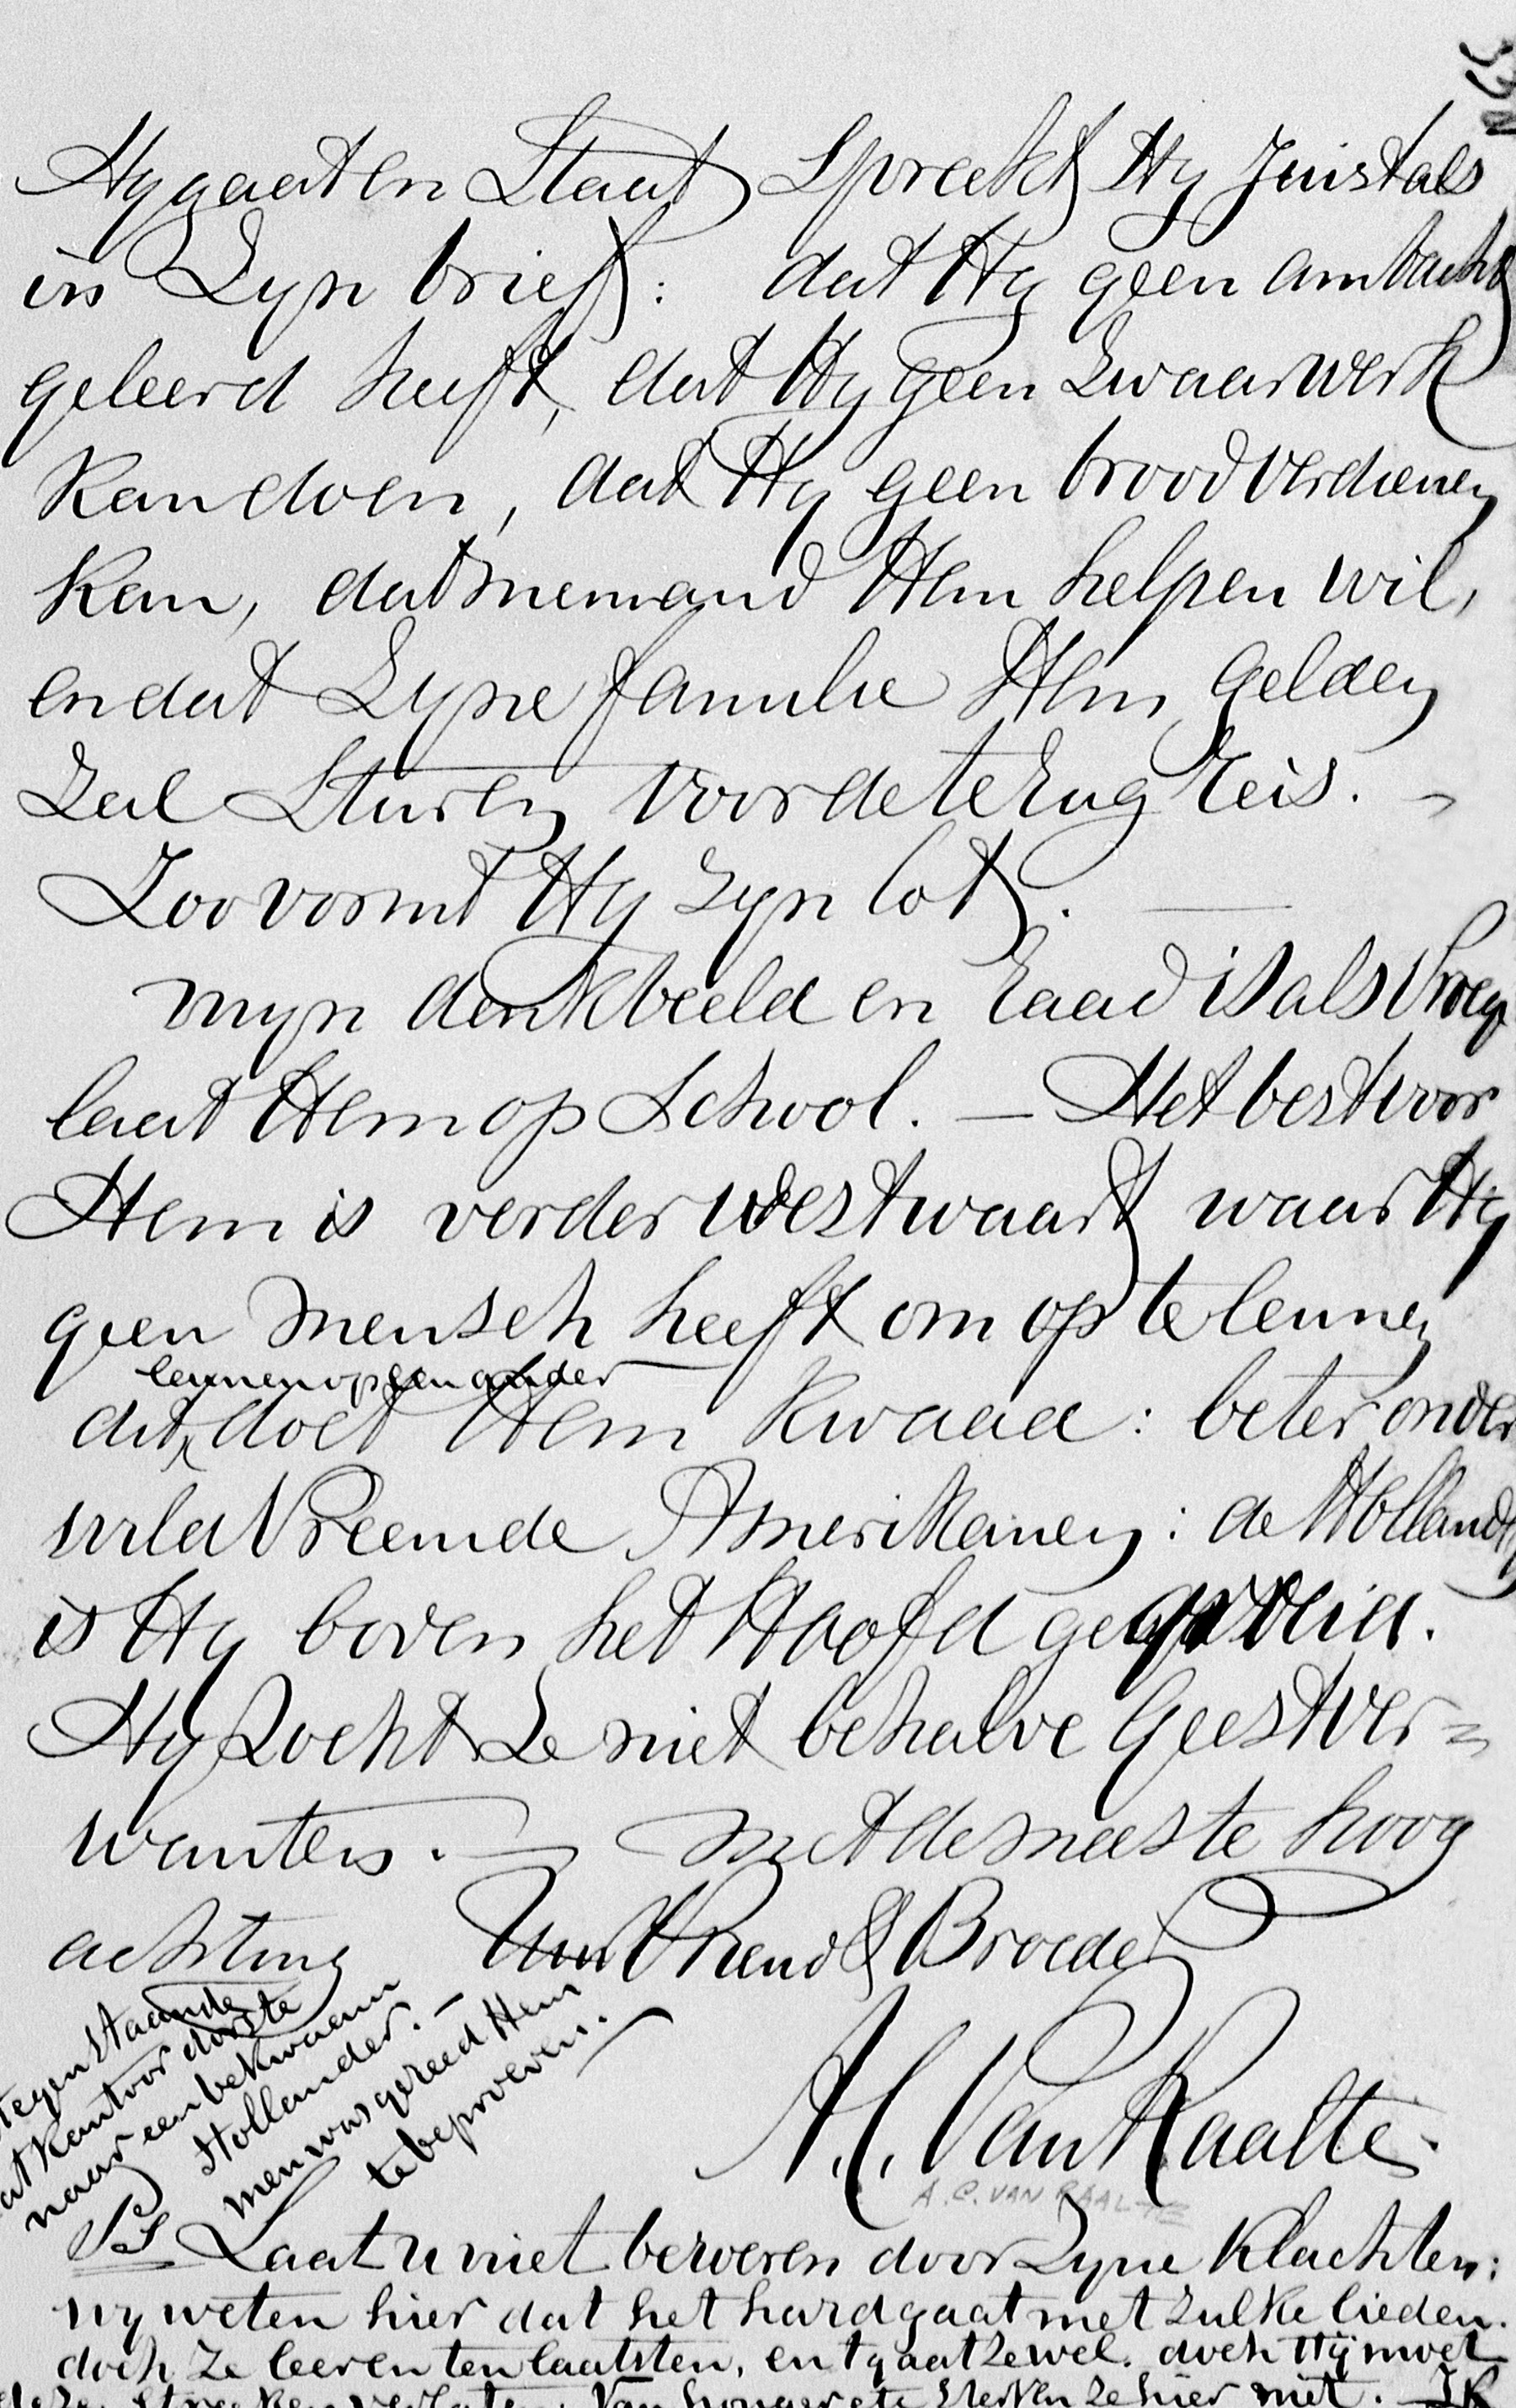 Hy gaat en Staat Spreekt Hy Juist als
in Zyn brief: dat Hy geen ambacht
geleerd heeft, dat Hy geen Zwaar werk
kan doen, dat Hy geen brood verdienen
kan, dat niemand Hem helpen wil,
en dat Zyne familie Hem gelden
Zal Sturen voor de terug reis. -
Zoo vormt Hy Zyn lot. —
myn denkbeeld en raad is als vroeg
laat Hem op School. — Het best voor
Hem is verder westwaart waar Hy
geen mensch heeft om op te leunen
leunen op een ander
dit doet Hem kwaad: beter onder
vreemde Amerikanen: de Holland
is Hy boven het Hoofd
Hy Zocht Ze niet behalve Geestver=
wanten. — met de meeste hoog
achting Uw Vriend & Broeder
A. C. Van Raalte.
A. C. VAN RAALTE
tegenstaande
at kantoor dorste
naar een bekwaam
Hollander. —
men was gereed Hem
te beproeven. —
PS Laat U niet beroeren door Zyne klachten:
wy weten hier dat het hard gaat met zulke lieden.
doch Ze leeren ten laatsten, en t gaat Ze wel. doch Hij moet
deze streeken verlaten. Van honger etc sterven ze hier niet.